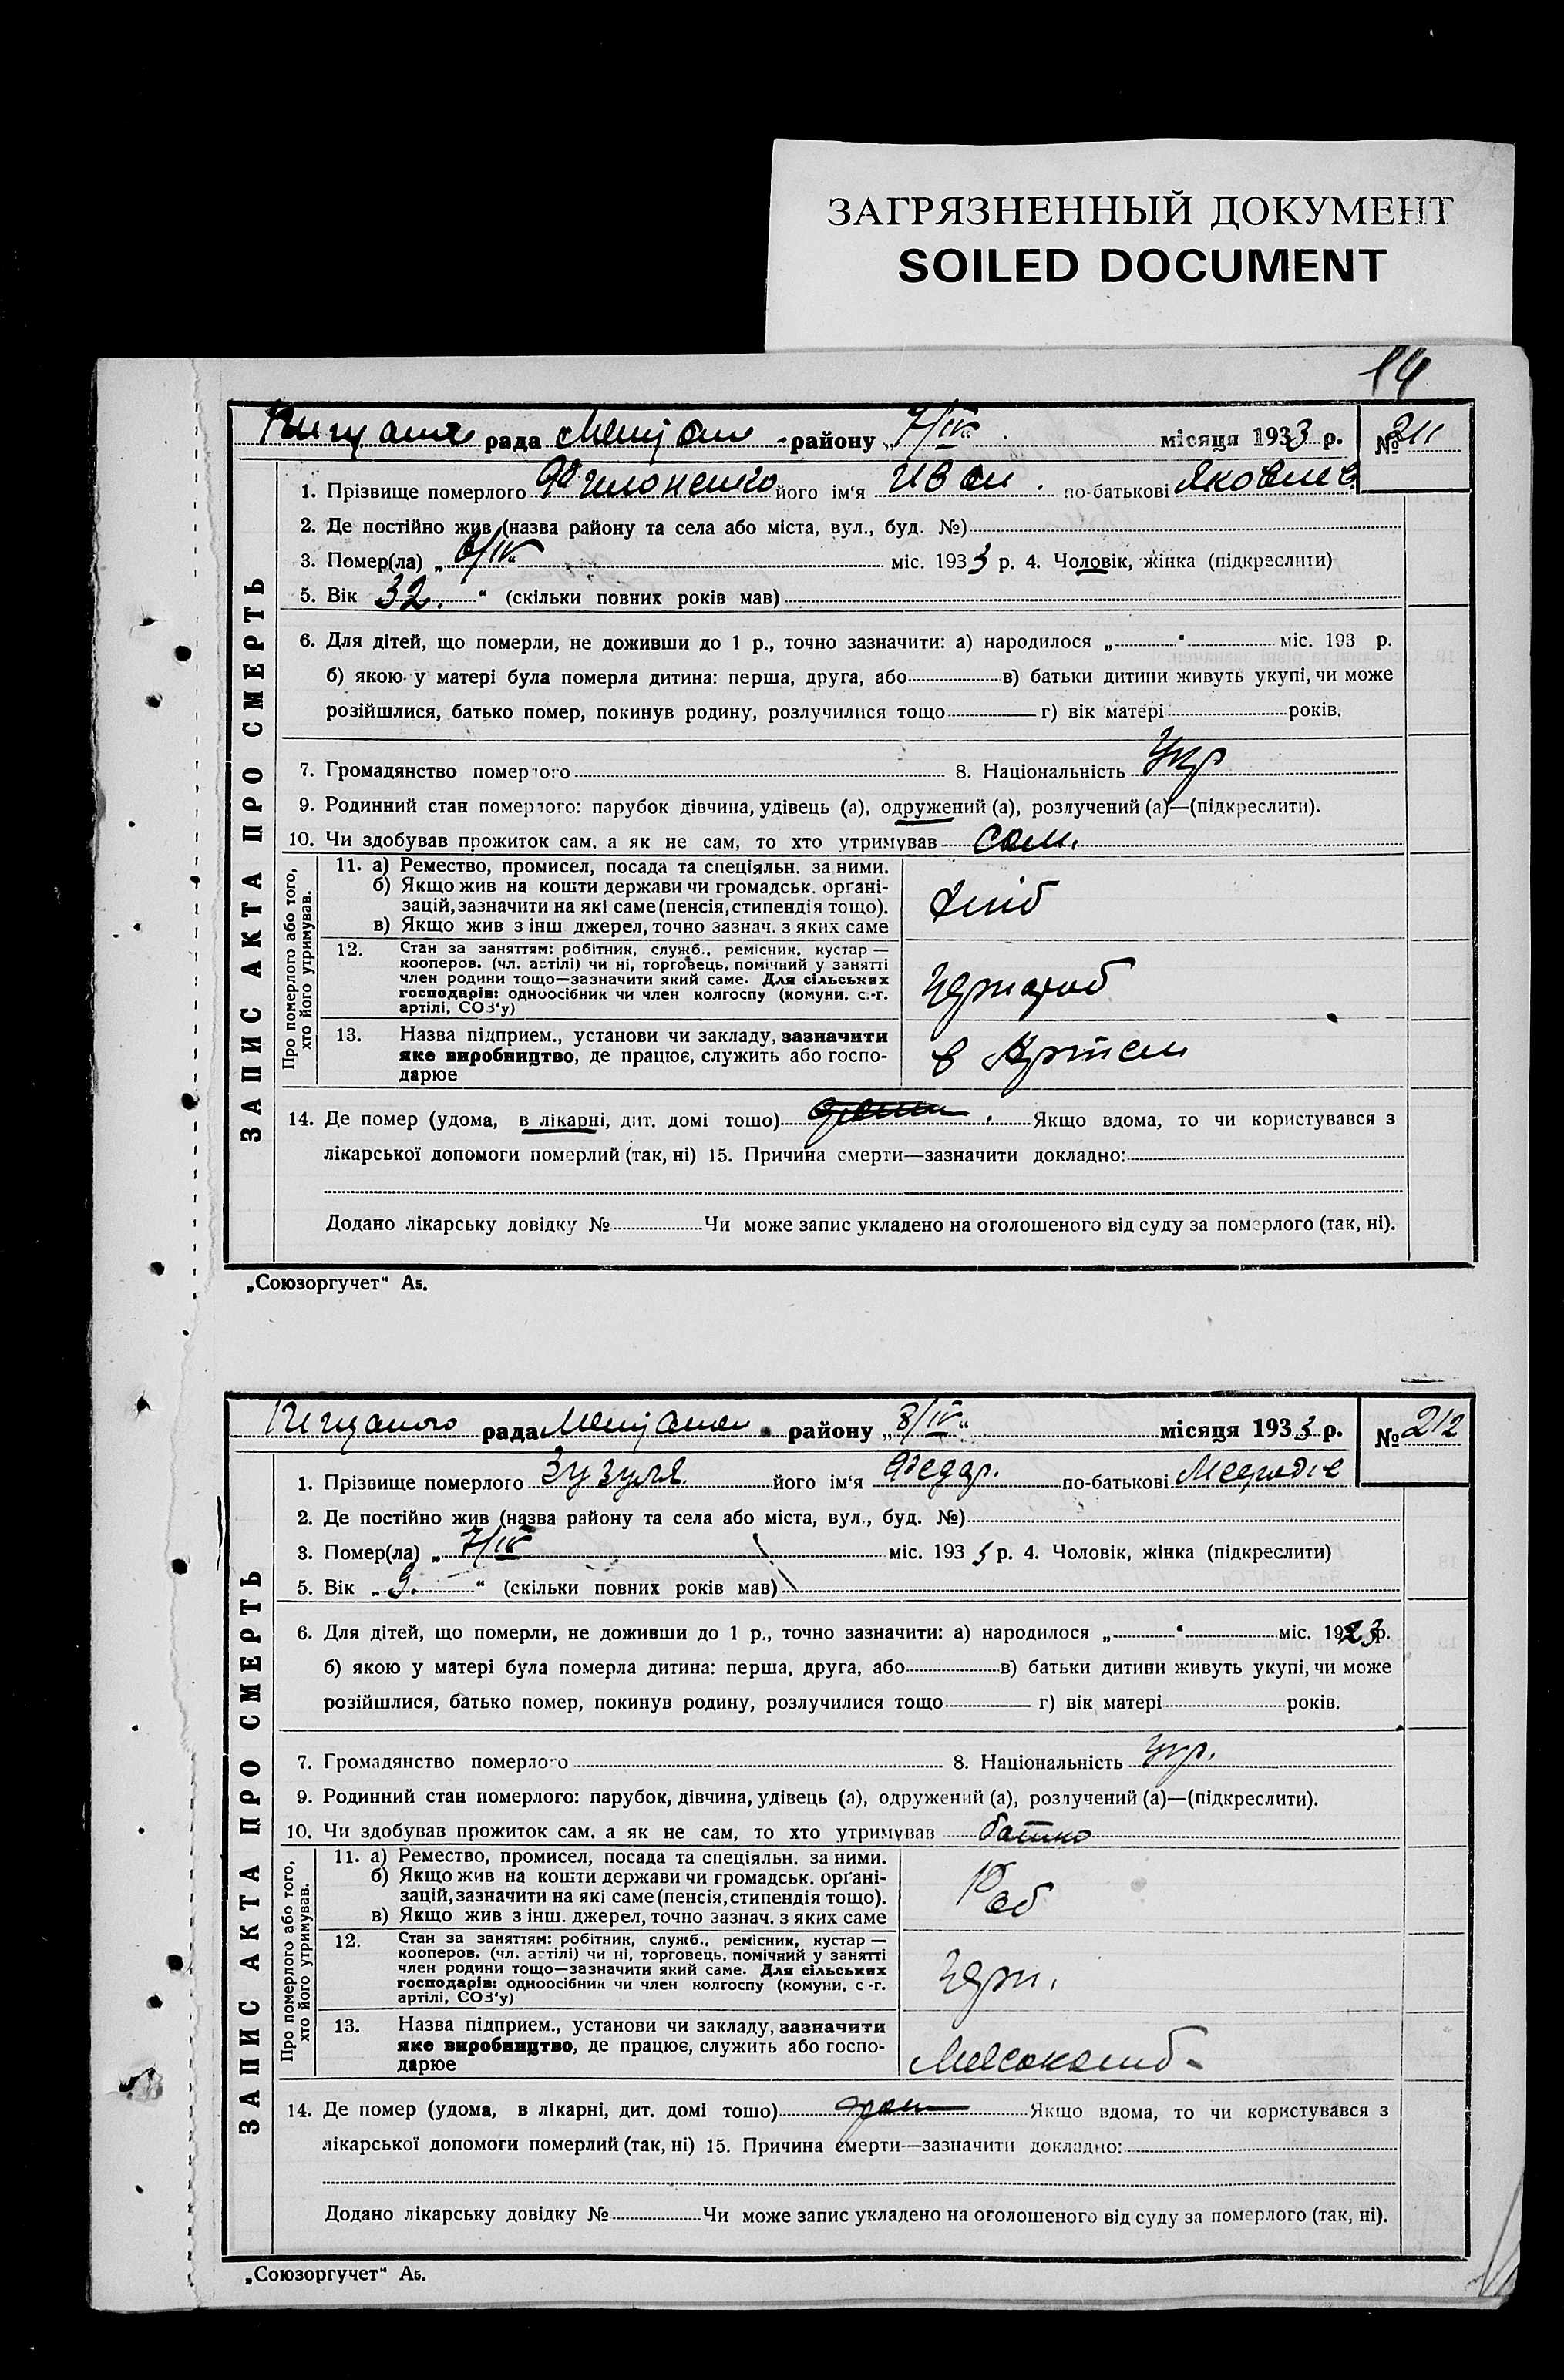 ЗАГРЯЗНЕННЫЙ ДОКУМЕНТ
SOILED DOCUMENT
14
рада район району „7/IV“ місяця 1933 р. № 211
ЗАПИС АКТА ПРО СМЕРТЬ
1. Прізвище померлого Филоненко його ім'я Иван. по-батькові Яковлев.
2. Де постійно жив (назва району та села або міста, вул., буд. №)
3. Помер(ла) „6/IV“ міс. 1933 р. 4. Чоловік, жінка (підкреслити)
5. Вік 32. “ (скільки повних років мав)
6. Для дітей, що померли, не доживши до 1 р., точно зазначити: а) народилося „ “ міс. 193 р.
б) якою у матері була померла дитина: перша, друга, або в) батьки дитини живуть укупі, чи може
розійшлися, батько помер, покинув родину, розлучилися тощо г) вік матері років.
7. Громадянство померлого 8. Національність Укр
9. Родинний стан померлого: парубок дівчина, удівець (а), одружений (а), розлучений (а)—(підкреслити).
10. Чи здобував прожиток сам. а як не сам, то хто утримував сам.
Про померлого або того, хто його утримував.
11. а) Ремество, промисел, посада та спеціяльн. за ними.
б) Якщо жив на кошти держави чи громадськ. орґані-
зацій, зазначити на які саме (пенсія, стипендія тощо).
в) Якщо жив з інш джерел, точно зазнач. з яких саме
хліб
12. Стан за заняттям: робітник, служб., ремісник, кустар —
кооперов. (чл. артілі) чи ні, торговець, помічний у занятті
член родини тощо—зазначити який саме. Для сільських
господарів: одноосібник чи член колгоспу (комуни, с.-г.
артілі, СОЗ'у)
13. Назва підприєм., установи чи закладу, зазначити
яке виробництво, де працює, служить або госпо-
дарює
в Артели
14. Де помер (удома, в лікарні, дит. домі тощо) Якщо вдома, то чи користувався з
лікарської допомоги померлий (так, ні) 15. Причина смерти—зазначити докладно:
Додано лікарську довідку № Чи може запис укладено на оголошеного від суду за померлого (так, ні).
„Союзоргучет“ Аб.
рада району „8/IV“ місяця 1933 р. № 212
ЗАПИС АКТА ПРО СМЕРТЬ
1. Прізвище померлого Зузуля його ім'я Федор. по-батькові
2. Де постійно жив (назва району та села або міста, вул., буд. №)
3. Помер(ла) „7/IV міс. 1933 р. 4. Чоловік, жінка (підкреслити)
5. Вік „9. “ (скільки повних років мав)
6. Для дітей, що померли, не доживши до 1 р., точно зазначити: а) народилося „ “ міс. 1923 р.
б) якою у матері була померла дитина: перша, друга, або в) батьки дитини живуть укупі, чи може
розійшлися, батько помер, покинув родину, розлучилися тощо г) вік матері років.
7. Громадянство померлого 8. Національність Укр.
9. Родинний стан померлого: парубок, дівчина, удівець (а), одружений (а), розлучений (а)—(підкреслити).
10. Чи здобував прожиток сам. а як не сам, то хто утримував батько
Про померлого або того, хто його утримував.
11. а) Ремество, промисел, посада та спеціяльн. за ними.
б) Якщо жив на кошти держави чи громадськ. орґані-
зацій, зазначити на які саме (пенсія, стипендія тощо).
в) Якщо жив з інш. джерел, точно зазнач. з яких саме
Роб
12. Стан за заняттям: робітник, служб., ремісник, кустар —
кооперов. (чл. артілі) чи ні, торговець, помічний у занятті
член родини тощо—зазначити який саме. Для сільських
господарів: одноосібник чи член колгоспу (комуни, с-г.
артілі, СОЗ'у)
13. Назва підприєм., установи чи закладу, зазначити
яке виробництво, де працює, служить або госпо-
дарює
14. Де помер (удома, в лікарні, дит. домі тощо) Якщо вдома, то чи користувався з
лікарської допомоги померлий (так, ні) 15. Причина смерти—зазначити докладно:
Додано лікарську довідку № Чи може запис укладено на оголошеного від суду за померлого (так, ні).
„Союзоргучет“ Аб.